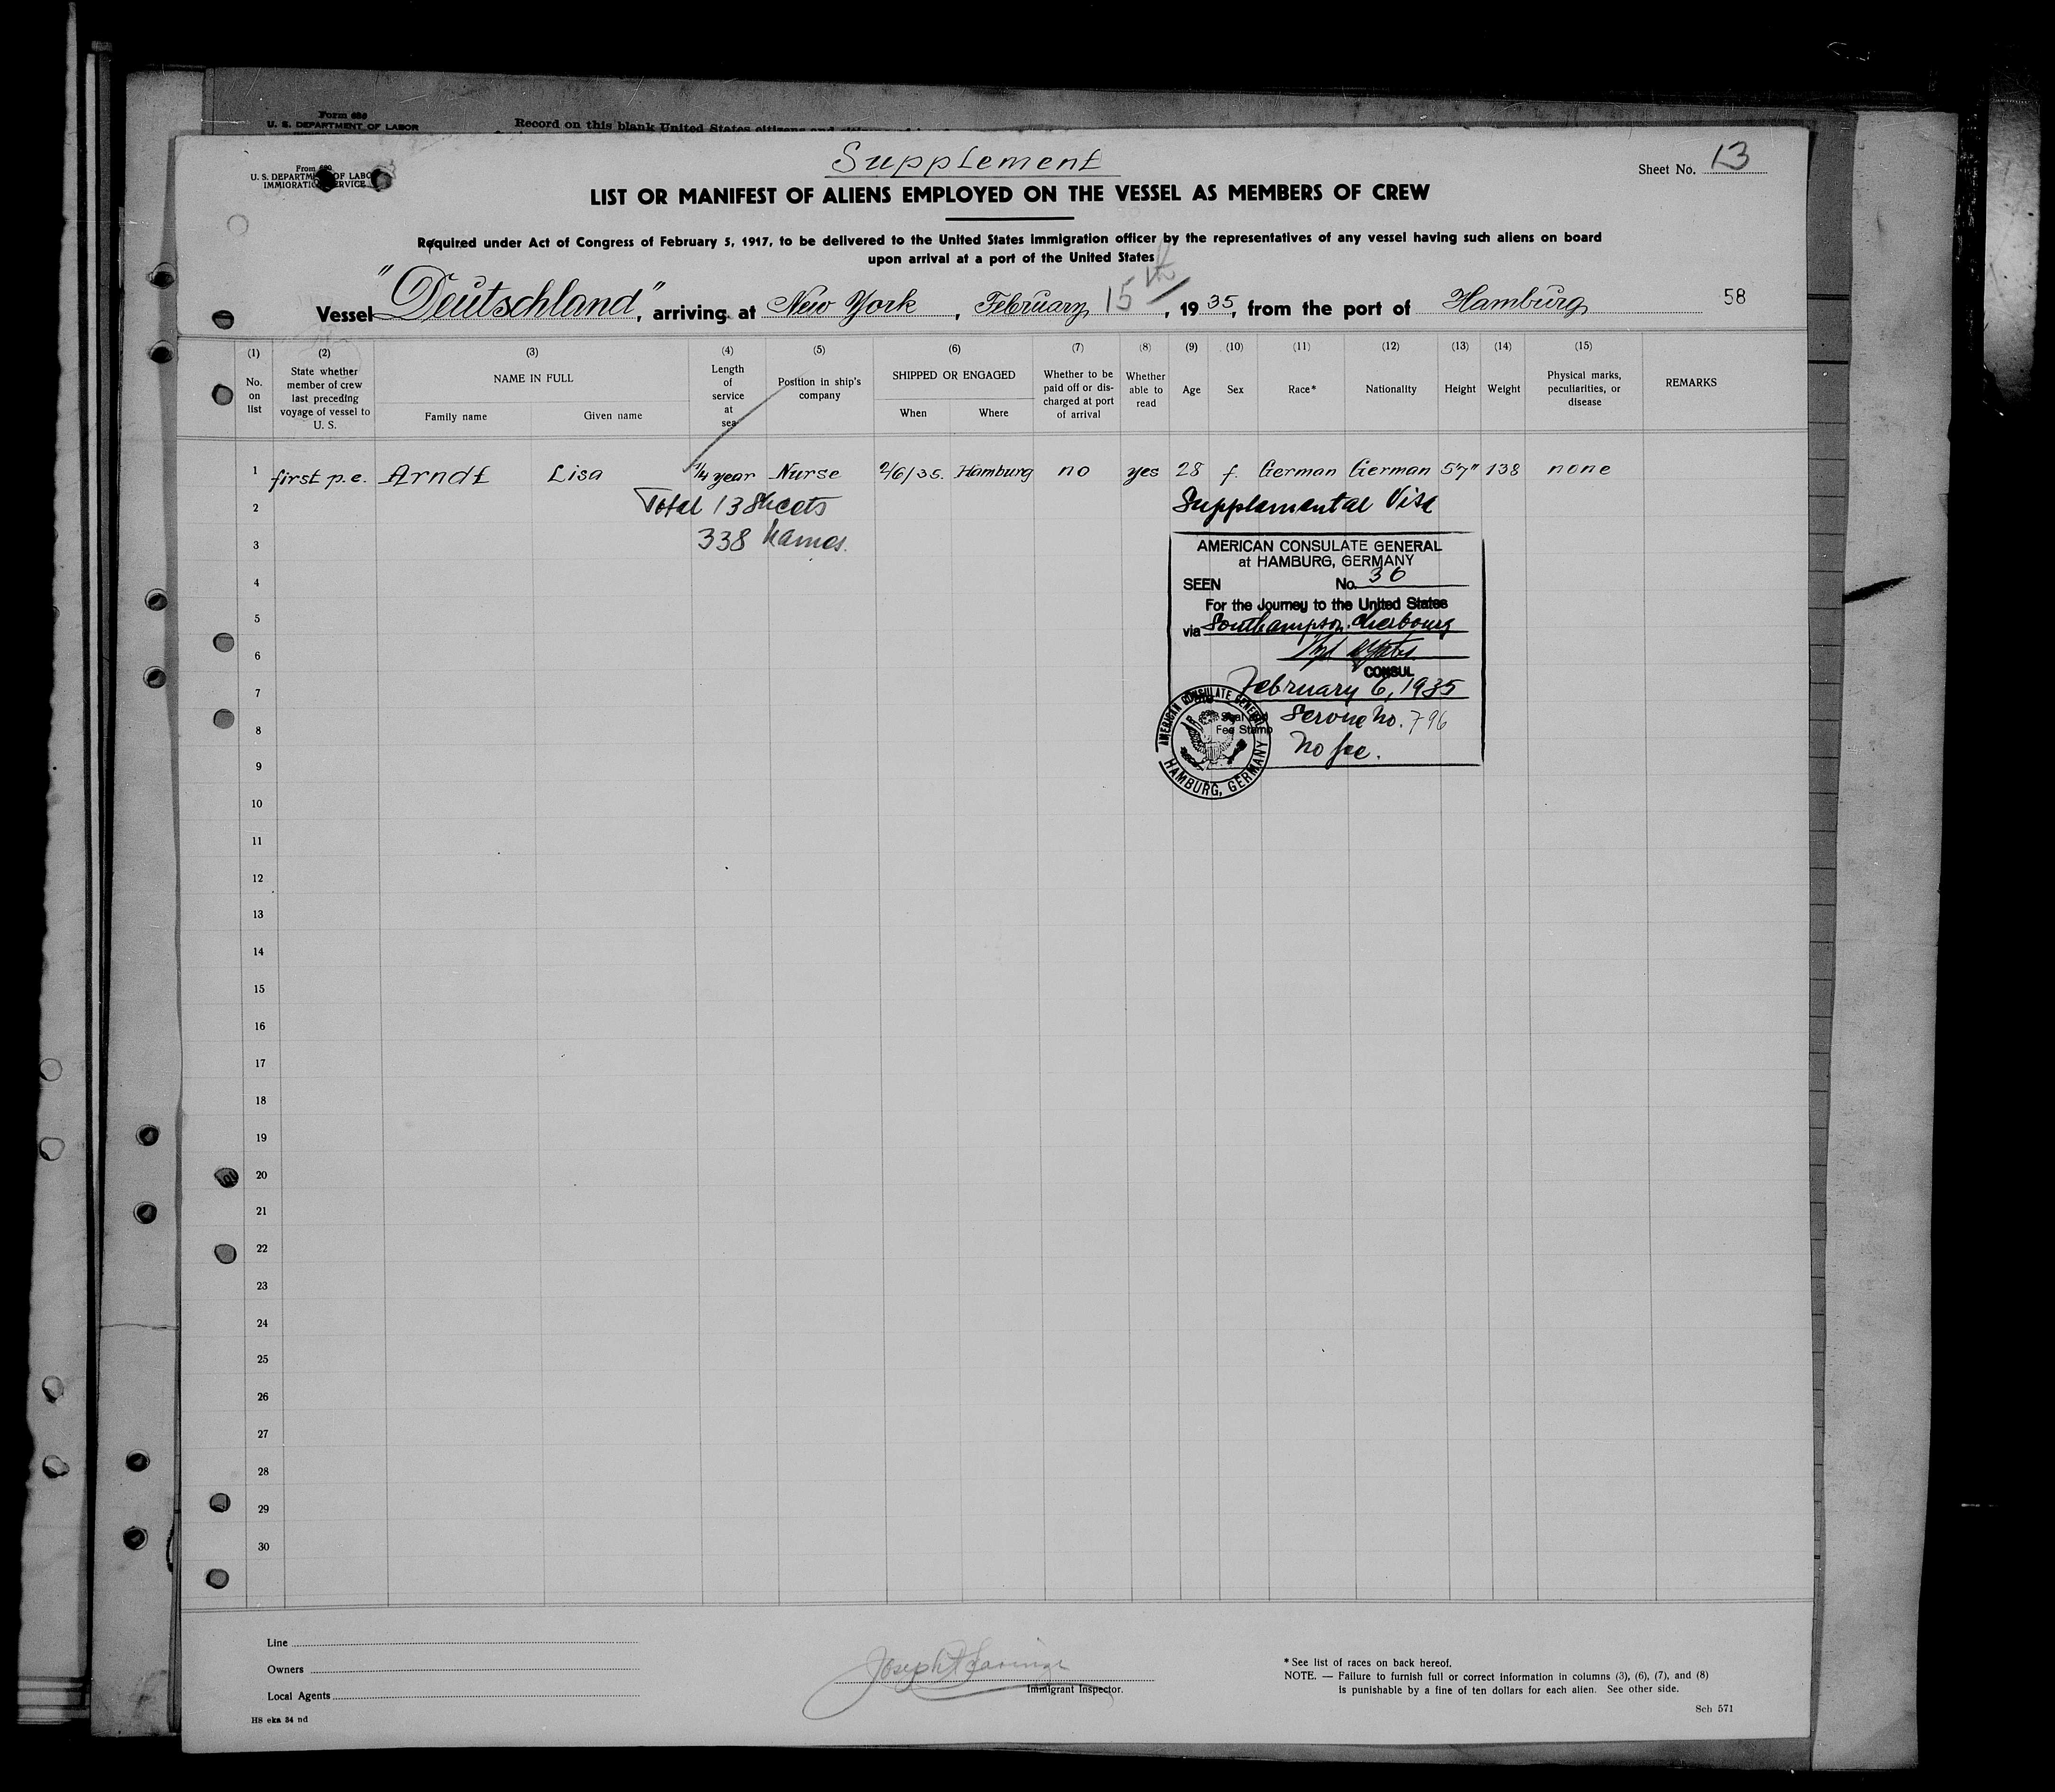 Form 686
U. S. DEPARTMENT OF LABOR
Record on this blank United States citizens and
Supplement
Sheet No. 13
From 680
U. S. DEPARTMENT OF LABOR
IMMIGRATION SERVICE
LIST OR MANIFEST OF ALIENS EMPLOYED ON THE VESSEL AS MEMBERS OF CREW
Required under Act of Congress of February 5, 1917, to be delivered to the United States immigration officer by the representatives of any vessel having such aliens on board
upon arrival at a port of the United States
Vessel "Deutschland", arriving at New York, February 15th, 1935, from the port of Hamburg
58
(1) (2) (3) (4) (5) (6) (7) (8) (9) (10) (11) (12) (13) (14) (15)
No. on list
State whether member of crew last preceding voyage of vessel to U. S.
NAME IN FULL
Family name
Given name
Length of service at sea
Position in ship's company
SHIPPED OR ENGAGED
When
Where
Whether to be paid off or discharged at port of arrival
Whether able to read
Age
Sex
Race*
Nationality
Height
Weight
Physical marks, peculiarities, or disease
REMARKS
1 first p.e. Arndt Lisa 1/4 year Nurse 2/6/35. Hamburg no yes 28 f. German German 5'7" 138 none
2 Total 13 Sheets Supplemental Visa
3 338 names.
AMERICAN CONSULATE GENERAL
at HAMBURG, GERMANY
4
SEEN No. 36
For the Journey to the United States
5
via Southampton. Cherbourg
6
CONSUL
7 February 6, 1935
Seal and
Fee Stamp
Service No. 796
8
No fee.
AMERICAN CONSULATE GENERAL
HAMBURG, GERMANY
9
10
11
12
13
14
15
16
17
18
19
20
21
22
23
24
25
26
27
28
29
30
Line
Owners
Local Agents
HS eka 34 nd
Immigrant Inspector.
* See list of races on back hereof.
NOTE. — Failure to furnish full or correct information in columns (3), (6), (7), and (8)
is punishable by a fine of ten dollars for each alien. See other side.
Sch 571